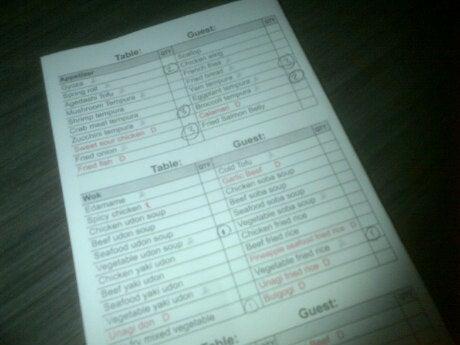 Table: Guest:
Appetizer QTY
Gyoza
Spring roll
Agedashi Tofu
Mushroom Tempura
Shrimp tempura
Crab meat tempura
Zucchini tempura
Sweet sour chicken D
Fried onion
Fried fish D
Scallop
Chicken wing
French fries
Fried bread
Yam tempura
Eggplant tempura
Broccoli tempura
Calamari D
Fried Salmon Belly
Table: Guest:
Wok QTY
Edamame
Spicy chicken
Chicken udon soup
Beef udon soup
Seafood udon soup
Vegetable udon soup
Chicken yaki udon
Beef yaki udon
Seafood yaki udon
Vegetable yaki udon
Unagi don D
fry mixed vegetable
QTY
Cold Tofu
Garlic Beef D
Chicken soba soup
Beef soba soup
Seafood soba soup
Vegetable soba soup
Chicken fried rice
Beef fried rice
Pineapple seafood fried rice D
Vegetable fried rice
Unagi fried rice D
Bulgogi D
Table: Guest:
QTY